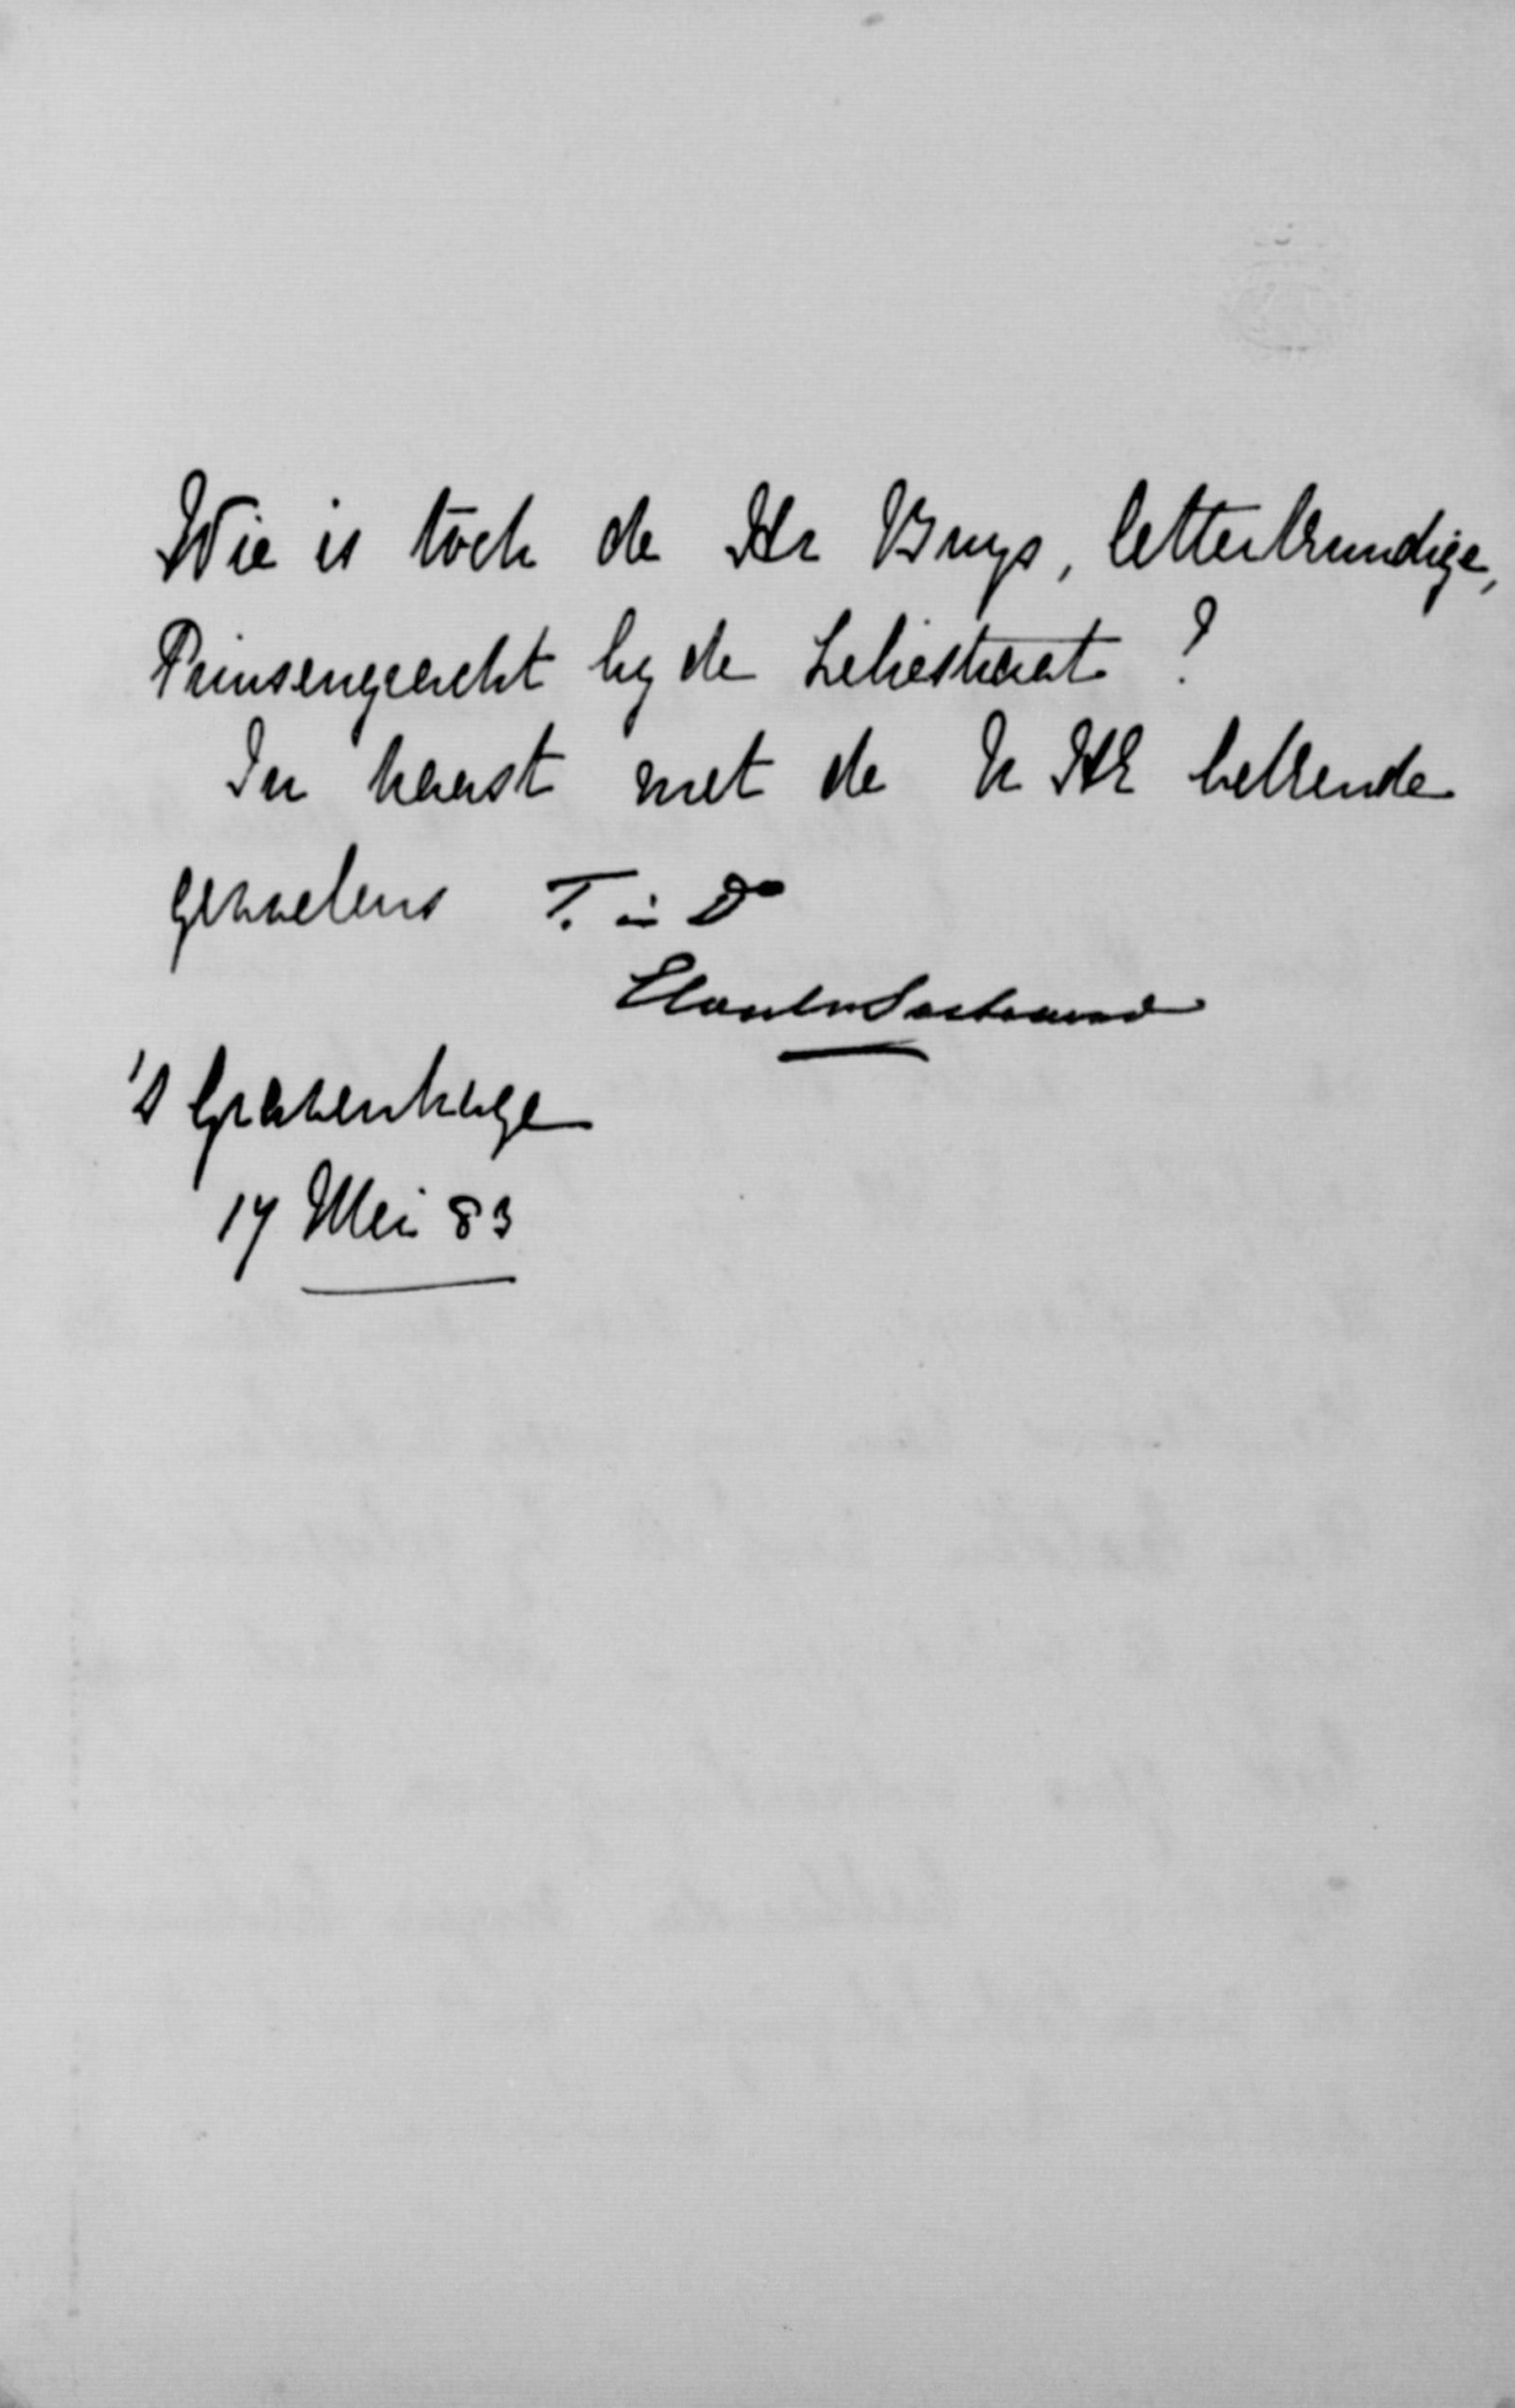 Wie is toch de Hr Bruys, letterkundige,
Prinsengracht by de Leliestraat ?
In haast met de U HE bekende
gevoelens T. in Do
's Gravenhage
17 Mei 83